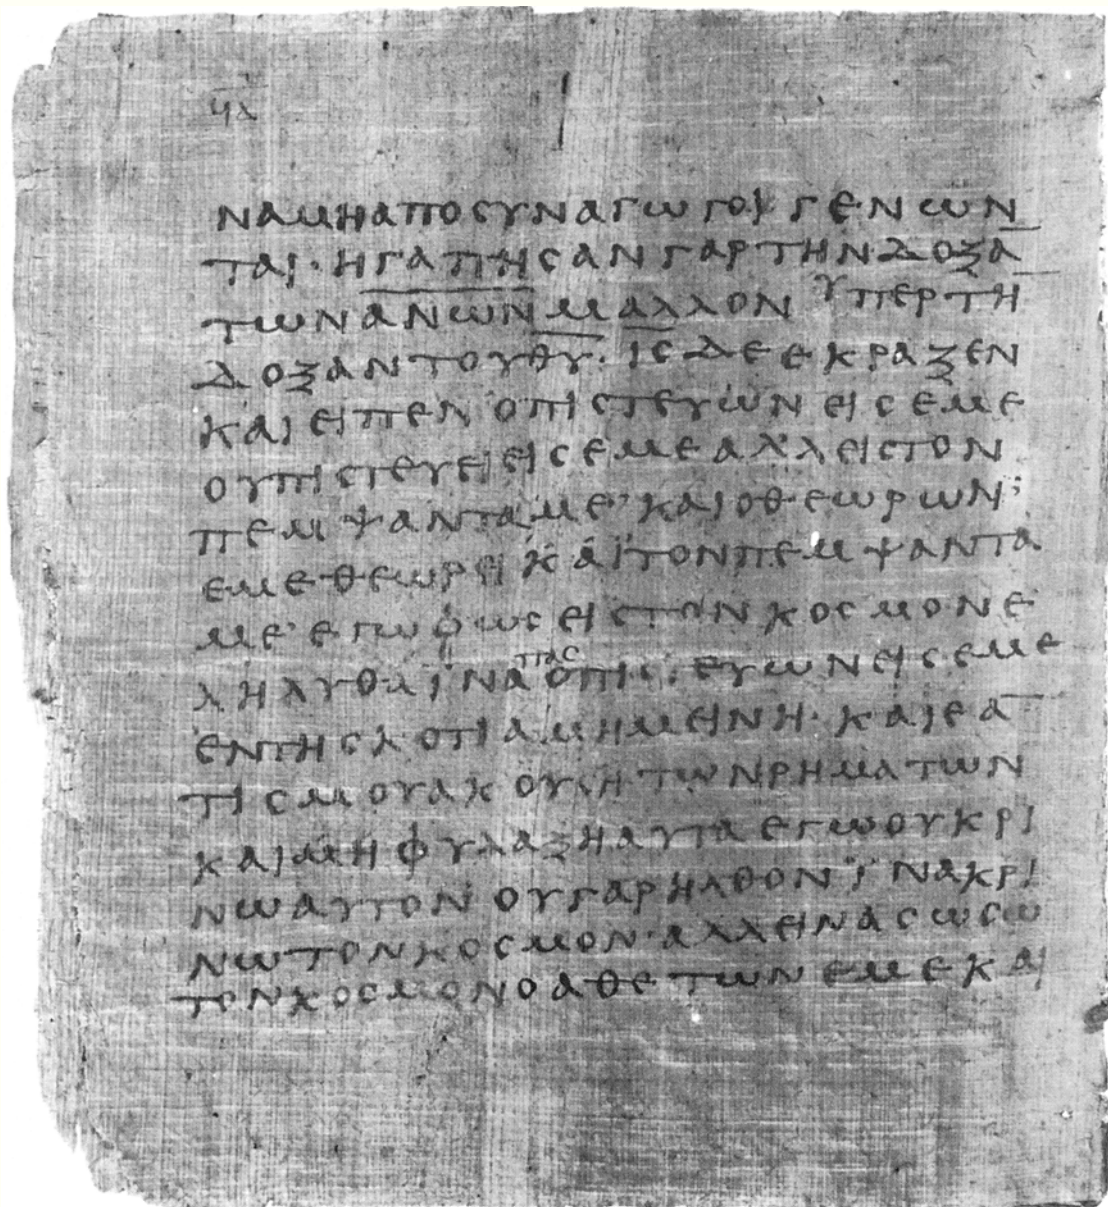 ΝΑΜΗΑΠΟϹΥΝΑΓΩΓΟΙΓΕΝΩΝ
ΤΑΙ·ΗΓΑΠΗϹΑΝΓΑΡΤΗΝΔΟΞΑ̅
ΤΩΝΑ̅Ν̅Ω̅Ν̅ΜΑΛΛΟΝΥΠΕΡΤΗ̅
ΔΟΞΑΝΤΟΥΘ̅Υ̅·Ι̅Ϲ̅ΔΕΕΚΡΑΞΕΝ
ΚΑΙΕΙΠΕΝΟΠΙϹΤΕΥΩΝΕΙϹΕΜΕ
ΟΥΠΙϹΤΕΥΕΙΕΙϹΕΜΕΑΛΛΕΙϹΤΟΝ
ΠΕΜΨΑΝΤΑΜΕ·ΚΑΙΟΘΕΩΡΩΝ
ΕΜΕΘΕΩΡΕΙΚΑΙΤΟΝΠΕΜΨΑΝΤΑ
ΜΕ·ΕΓΩΦΩϹΕΙϹΤΟΝΚΟϹΜΟΝΕ
ΠΑϹ
ΛΗΛΥΘΑΪΝΑΟΠΙϹΤΕΥΩΝΕΙϹΕΜΕ
ΕΝΤΗϹΚΟΤΙΑΜΗΜΕΙΝΗ·ΚΑΙΕΑ̅
ΤΙϹΜΟΥΑΚΟΥϹΗΤΩΝΡΗΜΑΤΩΝ
ΚΑΙΜΗΦΥΛΑΞΗΑΥΤΑΕΓΩΟΥΚΡΙ
ΝΩΑΥΤΟΝΟΥΓΑΡΗΛΘΟΝΪΝΑΚΡΙ
ΝΩΤΟΝΚΟϹΜΟΝ·ΑΛΛΕΙΝΑϹΩϹΩ
ΤΟΝΚΟϹΜΟΝΟΑΘΕΤΩΝΕΜΕΚΑΙ